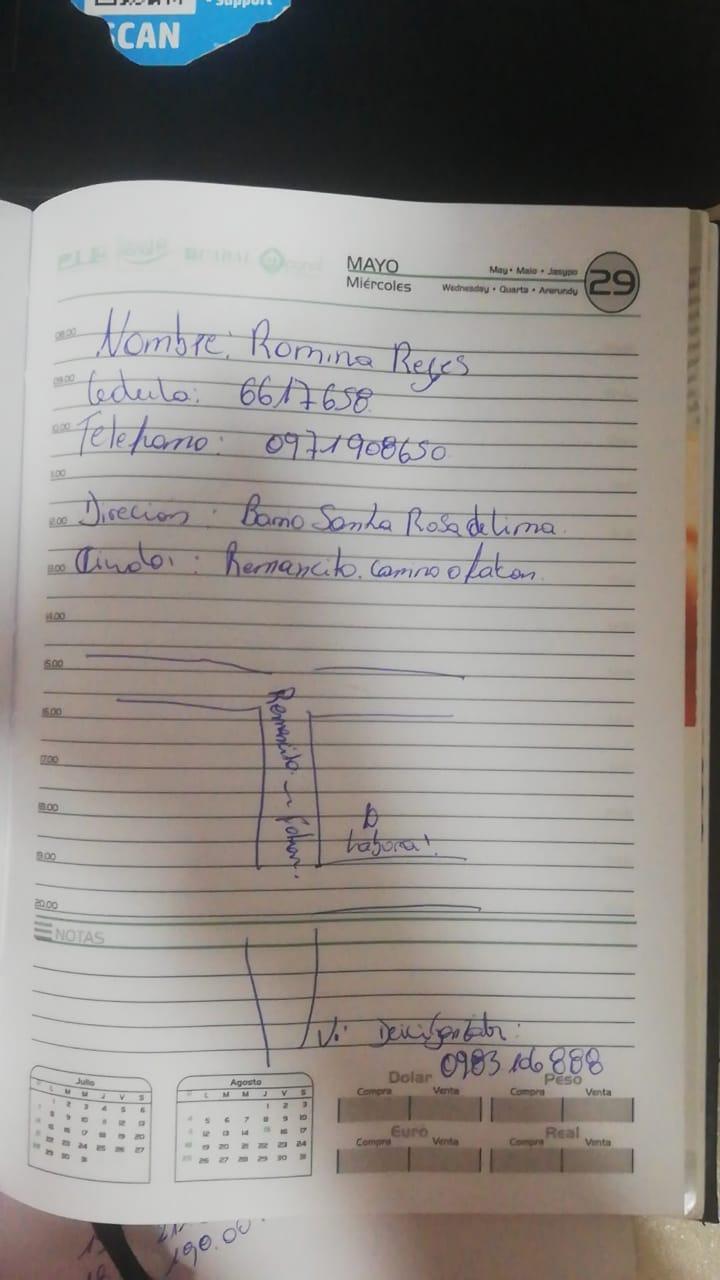 Support
SCAN
MAYO
Miércoles
May • Maio • Jasypo
Wednesday • Quarta • Ararundy
29
08.00
Nombre: Romina Reyes
09.00
Cedula: 6617658
10.00
Telefono: 0971908650
11.00
12.00
Direcion: Barrio Santa Rosa de Lima.
13.00
Remancito. Camino
14.00
15.00
16.00
Remancito
17.00
18.00
D
Laboral
19.00
20.00
NOTAS
0983 106 888
Julio
L M M J V S
1 2 3 4 5 6
8 9 10 11 12 13
15 16 17 18 19 20
22 23 24 25 26 27
29 30 31
Agosto
L M M J V S
1 2 3
5 6 7 8 9 10
12 13 14 15 16 17
19 20 21 22 23 24
26 27 28 29 30 31
Dolar
Compra Venta
Peso
Compra Venta
Euro
Compra Venta
Real
Compra Venta
190.00